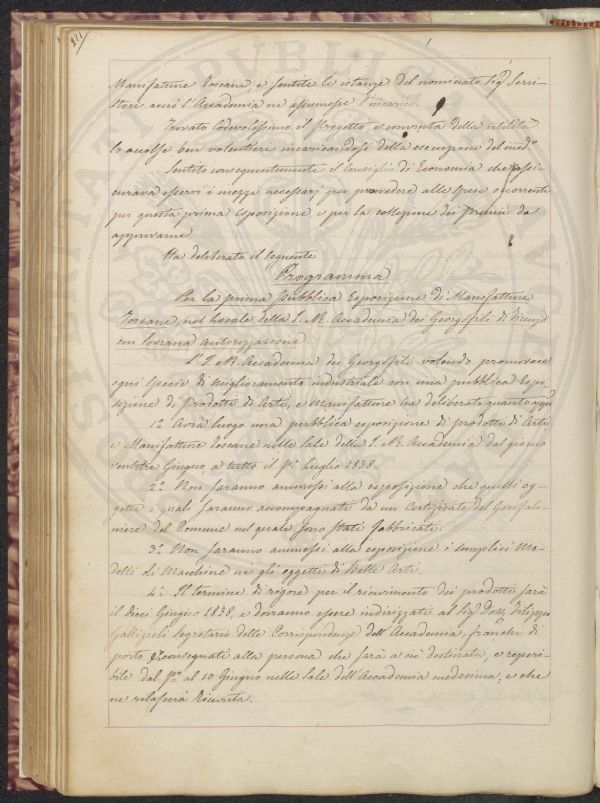 Manifatture Toscane, e sentite le istanze del nominato Sig.r Serri-
stori acciò l'Accademia ne assumesse l'incarico.
Trovato lodevolissimo il Progetto e convinta della utilità
lo accolse ben volentieri incaricandosi della esecuzione del med.o
Sentito conseguentemente il Consiglio di Economia che assi-
curava esservi i mezzi necessarj per provvedere alle spese occorrenti
per questa prima Esposizione e per la collezione dei premii da
approvarne
Ha deliberato il seguente
Programma
Per la prima Pubblica Esposizione di Manifatture
Toscane, nel Locale della I. R. Accademia dei Georgofili di Firenze
con Sovrana autorizzazione
L'I. R. Accademia dei Georgofili volendo promuovere
ogni specie di miglioramento industriale con una pubblica Espo-
sizione di Prodotti di Arti, e Manifatture ha deliberato quanto appresso
1.o Avrà luogo una pubblica esposizione di prodotti di Arti
e Manifatture Toscane nelle Sale della I. R. Accademia dal giorno
ventitre Giugno, a tutto il p.o Luglio 1838.
2.o Non saranno ammessi alla esposizione che quelli og-
getti i quali saranno accompagnati da un Certificato del Gonfalo-
niere del Comune nel quale sono stati fabbricati.
3.o Non saranno ammessi alla esposizione i semplici Mo-
delli di Macchine nè gli oggetti di Belle Arti.
4.o Il termine di rigore per il ricevimento dei prodotti sarà
il dieci Giugno 1838, e dovranno essere indirizzati al Sig.r Dott. Filippo
Gallizioli Segretario delle Corrispondenze dell'Accademia, franchi di
porto, e consegnati alla persona che sarà a ciò destinata, e reperi-
bile dal p.mo al 10 Giugno nelle Sale dell'Accademia medesima, e che
ne rilascerà Ricevuta.